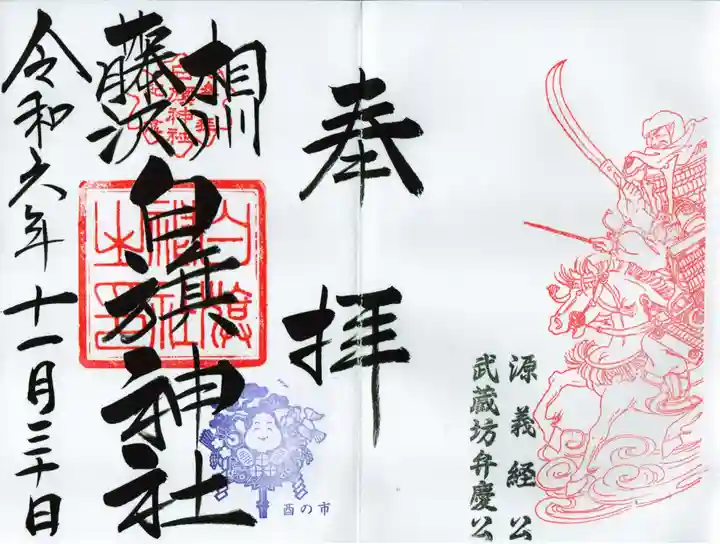 源義経公
武蔵坊弁慶公
奉拝
相州
藤沢
白旗神社
白旗神社之印
酉の市
令和六年十一月三十日